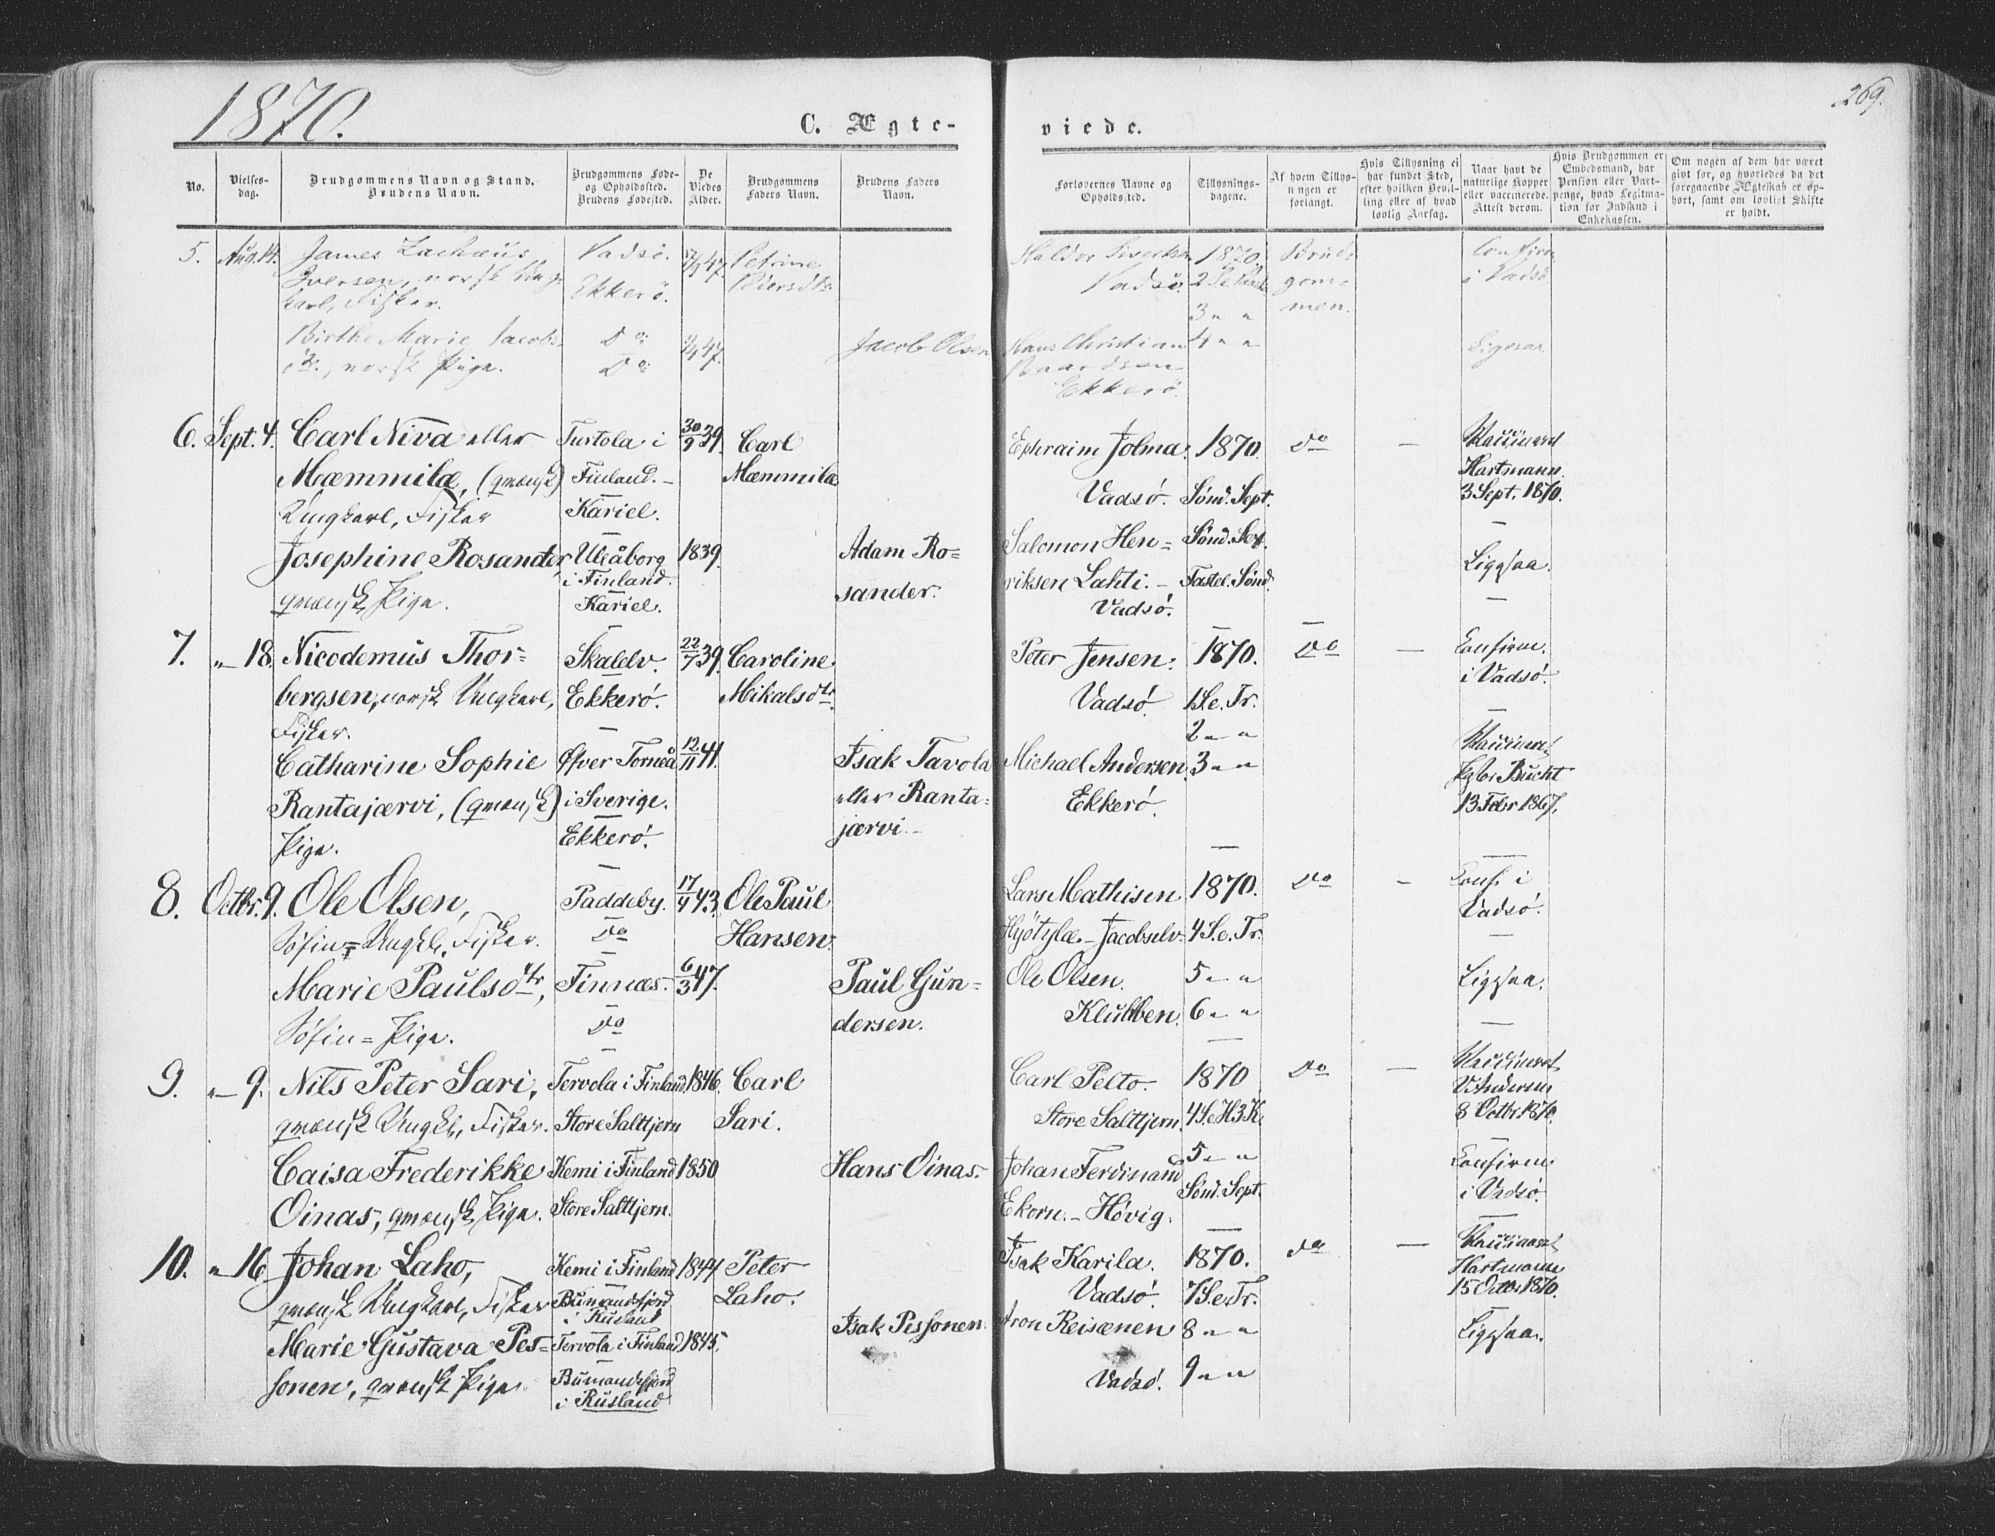 1870.
C. Ægte-
viede.
269.
No.
Vielses-
dag.
Brudgommens Navn og Stand.
Brudens Navn.
Brudgommens Føde-
og Opholdsted.
Brudens Fødested.
De
Viedes
Alder.
Brudgommens
Faders Navn.
Brudens Faders
Navn.
Forlovernes Navne og
Opholdsted.
Tillysnings-
dagene.
Af hvem Tillys-
ningen er
forlangt.
Hvis Tillysning ei
har fundet Sted,
efter hvilken Bevil-
ling eller af hvad
lovlig Aarsag.
Naar havt de
naturlige Kopper
eller vaccinerede.
Attest derom.
Hvis Brudgommen er
Embedsmand, har
Pension eller Vart-
penge, hvad Legitima-
tion for Indskud i
Enkekassen.
Om nogen af dem har været
givt før, og hvorledes da det
foregaaende Ægteskab er op-
hørt, samt om lovligt Skifte
er holdt.
5. Aug. 14. James Zachæus Vadsø. 47. Petrine 1870. Brud-
Iversen, norsk Ung- Ekkerø. Pedersdtr. Vadsø. gom- i Vadsø
karl, Fisker. 3 " " men.
Birthe Marie Jacobs- Do 47. Jacob Olsen Hans Christian 4 " " Ligesaa
dtr., norsk Pige. Do Baardsen
Ekkerø.
6. Sept. 4. Carl Niva eller Turtola i 30/9 39. Carl Ephraim Jolma 1870. Do — Vaccineret
Mæmmilæ, (qvænsk) Finland. – Mæmmilæ Vadsø. Sønd. Sept. Hartmann
Ungkarl, Fisker Kariel. 3 Sept. 1870.
Josephine Rosander Uleåborg 1839. Adam Ro= Salomon Hen= Sønd. Sex. Ligesaa.
qvænsk Pige. i Finland. sander. riksen Lahti. – Fastel. Sønd.
Kariel. Vadsø.
7. " 18. Nicodemus Thor= Skaldv. 22/7 39. Caroline Peter Jensen. 1870. Do — Confirm.
bergsen, norsk Ungkarl, Ekkerø. Mikalsdtr. Vadsø. 1 S. e. Tr. i Vadsø.
Fisker. 2 " "
Catharine Sophie Øfver Torneå 12/11 41. Isak Tavola Michael Andersen 3 " " Vaccineret
Rantajærvi, (qvænsk) i Sverige. eller Ranta- Ekkerø. Bucht
Pige. Ekkerø. jærvi. 13 Febr 1867.
8. Octbr. 9. Ole Olsen, Paddeby. 17/4 43. Ole Paul Lars Mathisen 1870. Do – Conf. i
Søfin=Ungk., Fisker. Do Hansen. Hyötylæ. – Jacobselv. 4 S. e. Tr. Vadsø.
Marie Paulsdtr, Finnæs. 6/3 47. Paul Gun= Ole Olsen. 5 " " Ligesaa.
Søfin=Pige. Do dersen. Klubben. 6 " "
9. " 9. Nils Peter Sari, Tervola i Finland 1846. Carl Carl Pelto. 1870 Do — Vaccineret
qvænsk Ungk., Fisker. Store Saltljern Sari. Store Saltljern. 4 S. e. H3K. Andersen
8 Octbr. 1870.
Caisa Frederikke Kemi i Finland 1850 Hans Oinas. Johan Ferdinand 5 " " Confirm.
Oinas, qvænsk Pige. Store Saltljern. Ekorn. – Høvig. Sønd. Sept. i Vadsø.
10. " 16 Johan Laho, Kemi i Finland 1844 Peter Isak Karila. 1870. Do — Vaccineret
qvænsk Ungkarl, Fisker Bumandsfjord Laho. Vadsø. 7 S. e. Tr. Hartmann
i Rusland 15 Octbr. 1870.
Marie Gustava Pes= Tervola i Finland 1845. Isak Pessonen. Aron Reisænen 8 " " Ligesaa.
sonen, qvænsk Pige. Bumandsfjord Vadsø. 9 " "
i Rusland